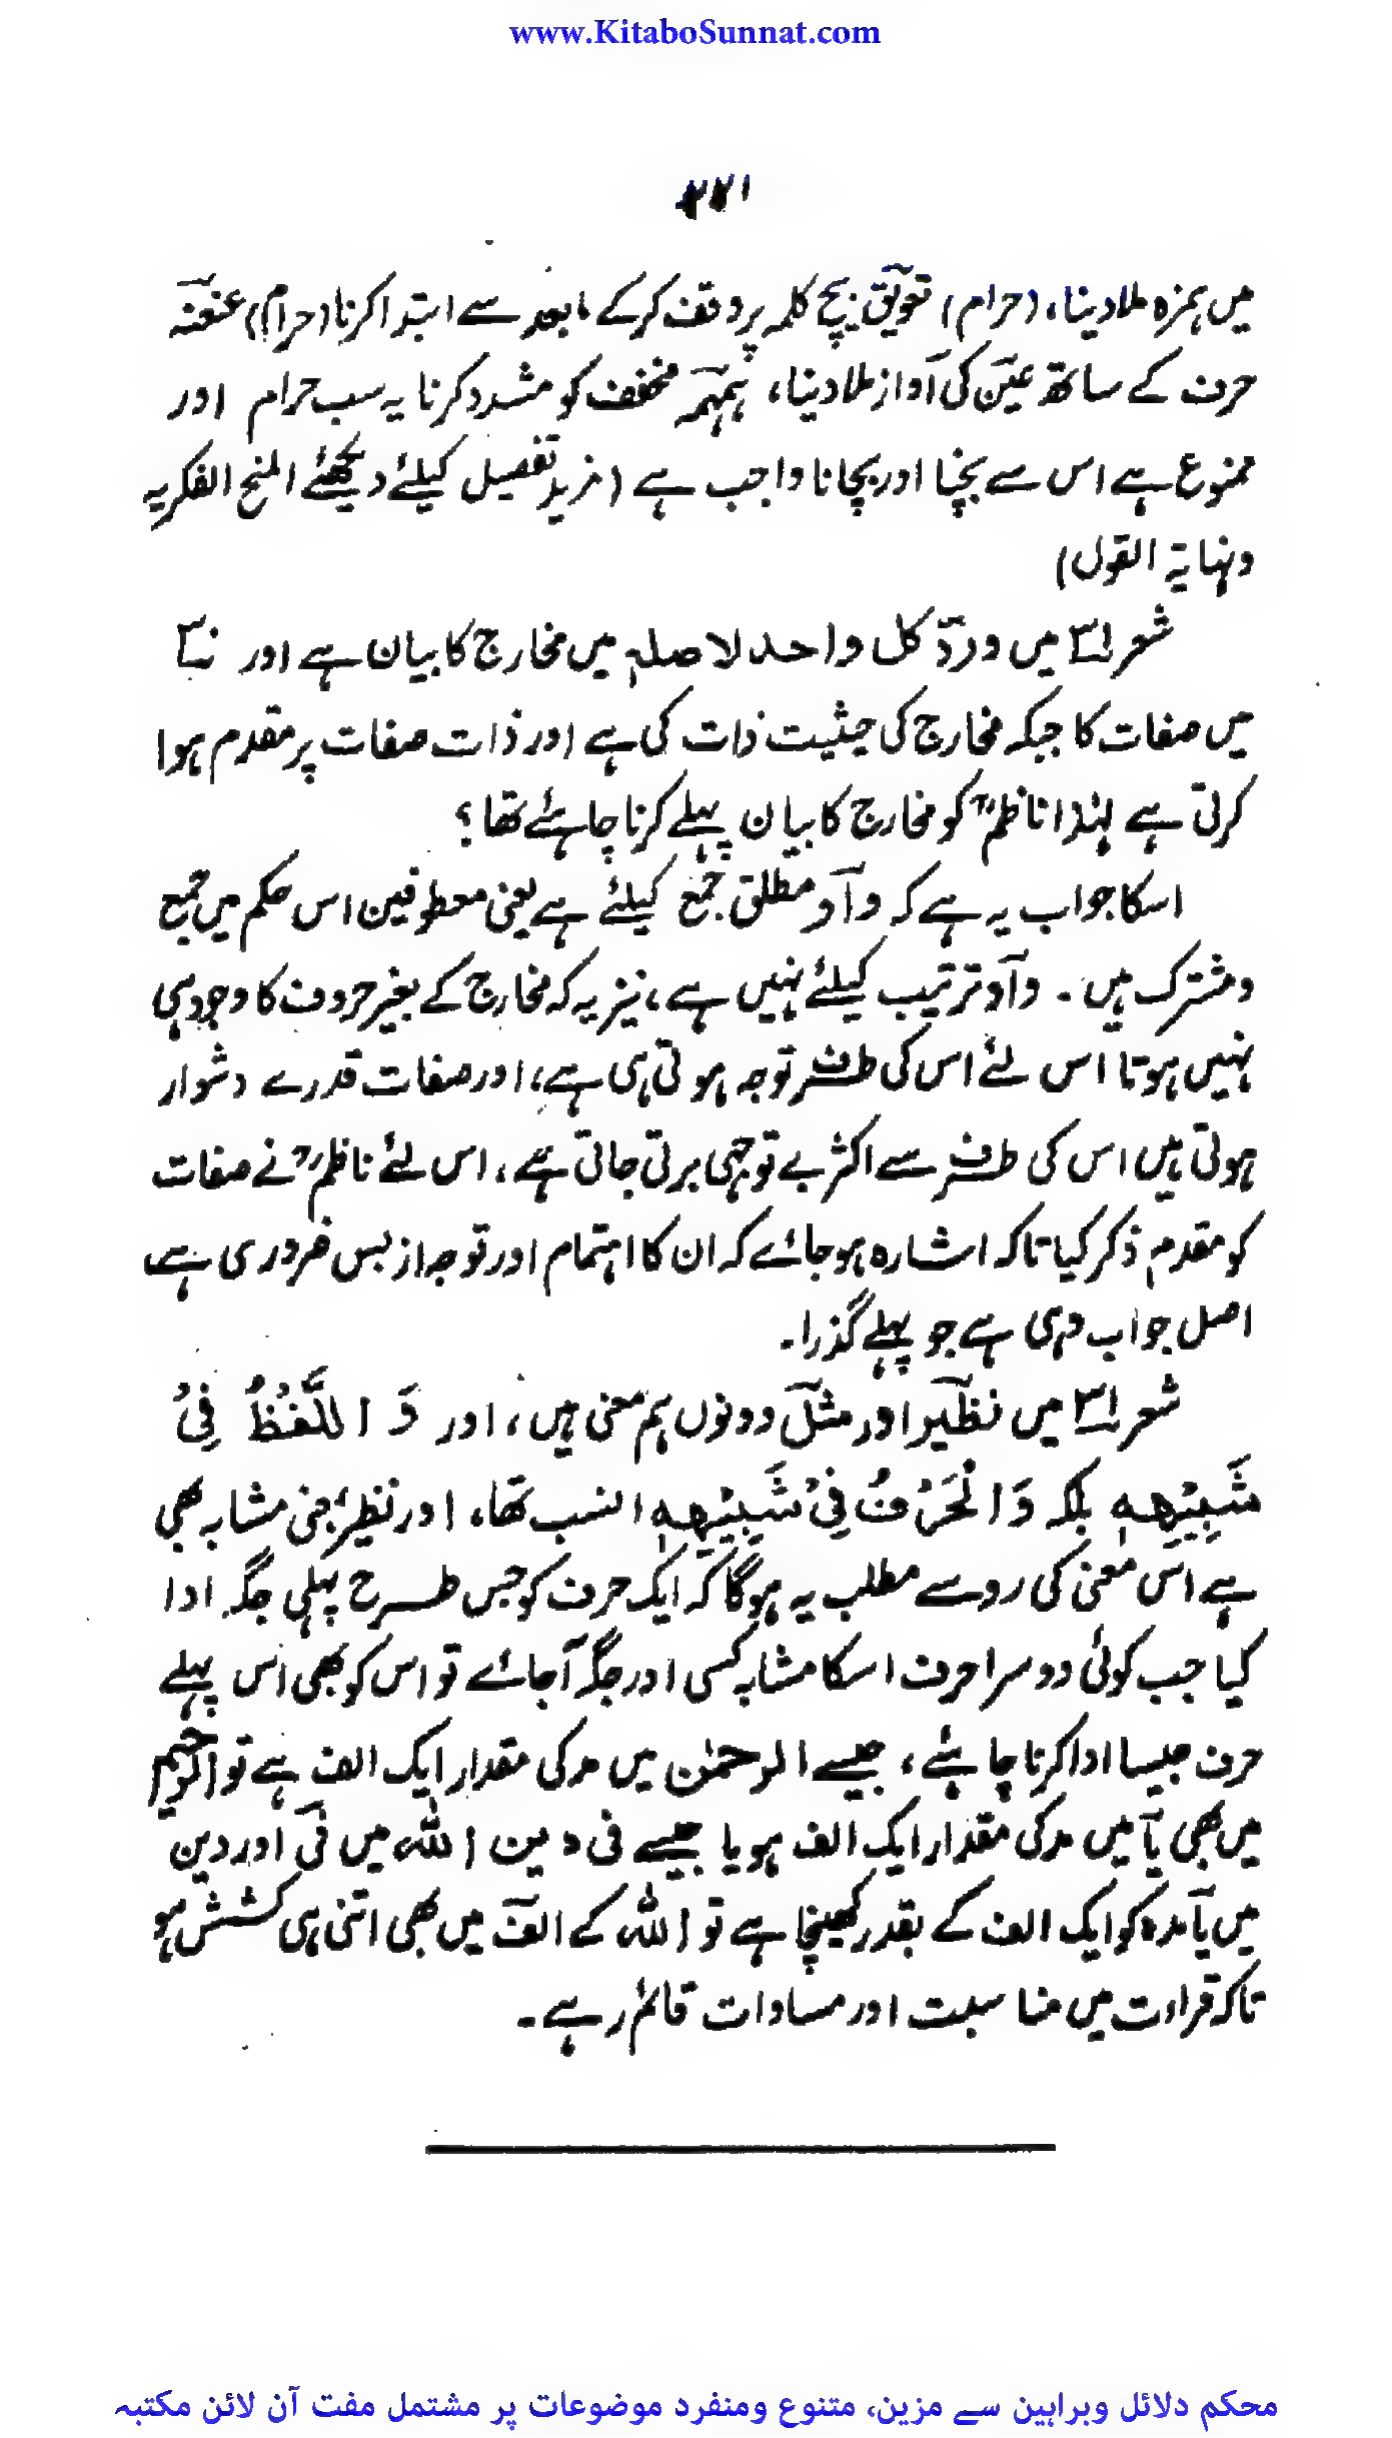 www.KitaboSunnat.com
۲۲۱
میں ہمزہ ملا دینا، (حرام) تعویق بیچ کلمہ پر وقف کرکے مابعد سے ابتدا کرنا (حرام) عنعنہ
حرف کے ساتھ عین کی آواز ملا دینا، ہمہمہ مخفف کو مشدد کرنا یہ سب حرام اور
ممنوع ہے اس سے بچنا اور بچانا واجب ہے (مزید تفصیل کیلئے دیکھئے المنح الفکریہ
ونہایۃ القول)
شعر میں وردّ کل واحد لاصلہٖ میں مخارج کا بیان ہے اور
میں صفات کا جبکہ مخارج کی حیثیت ذات کی ہے اور ذات صفات پر مقدم ہوا
کرتی ہے لہٰذا ناظمؒ کو مخارج کا بیان پہلے کرنا چاہئے تھا؟
اسکا جواب یہ ہے کہ واؤ مطلق جمع کیلئے ہے یعنی معطوفین اس حکم میں جمع
ومشترک ہیں۔ واؤ ترتیب کیلئے نہیں ہے، نیز یہ کہ مخارج کے بغیر حروف کا وجود ہی
نہیں ہوتا اس لئے اس کی طرف توجہ ہوتی ہی ہے، اور صفات قدرے دشوار
ہوتی ہیں اس کی طرف سے اکثر بے توجہی برتی جاتی ہے، اس لئے ناظمؒ نے صفات
کو مقدم ذکر کیا تاکہ اشارہ ہو جائے کہ ان کا اہتمام اور توجہ از بس ضروری ہے
اصل جواب وہی ہے جو پہلے گذرا۔
شعر میں نظیر اور مثل دونوں ہم معنی ہیں، اور وَ اللَّفْظُ فِیْ
شَبِیْهِهٖ بلکہ وَ الْحَرْفُ فِیْ شَبِیْهِهٖ انسب تھا، اور نظیر بمعنی مشابہ بھی
ہے اس معنی کی رو سے مطلب یہ ہوگا کہ ایک حرف کو جس طرح پہلی جگہ ادا
کیا جب کوئی دوسرا حرف اسکا مشابہ کسی اور جگہ آجائے تو اس کو بھی اس پہلے
حرف جیسا ادا کرنا چاہئے، جیسے الرحمٰن میں مد کی مقدار ایک الف ہے تو الرحیم
میں بھی یا میں مد کی مقدار ایک الف ہو یا جیسے فی دین اللہ میں فی اور دین
میں یا مدہ کو ایک الف کے بقدر کھینچا ہے تو اللہ کے الف میں بھی اتنی ہی کشش ہو
تاکہ قراءت میں مناسبت اور مساوات قائم رہے۔
محکم دلائل وبراہین سے مزین، متنوع ومنفرد موضوعات پر مشتمل مفت آن لائن مکتبہ